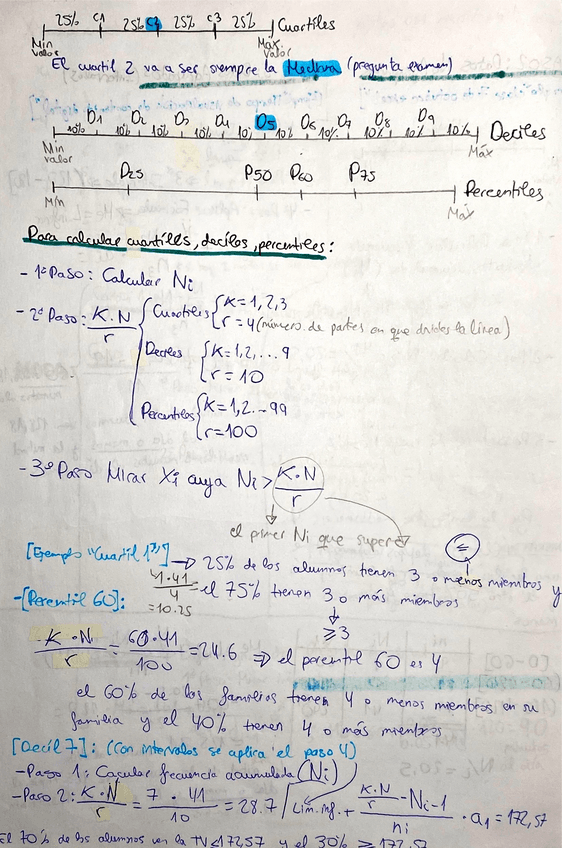 25% C1 25% C2 25% C3 25% Cuartiles
Min valor Max. valor
El cuartil 2 va a ser siempre la Mediana (pregunta examen)
D1 D2 D3 D4 D5 D6 D7 D8 D9
10% 10% 10% 10% 10% 10% 10% 10% 10% Deciles
Min valor Máx
P25 P50 P60 P75 Percentiles
Mín Máx
Para calcular cuartiles, deciles, percentiles:
- 1º Paso: Calcular Ni
- 2º Paso: K·N / r
Cuartiles K=1,2,3
r=4 (número de partes en que divides la línea)
Deciles K=1,2,...9
r=10
Percentiles K=1,2...99
r=100
- 3º Paso Mirar Xi cuya Ni > K·N / r
el primer Ni que supere
=
[Ejemplo "Cuartil 1"] → 25% de los alumnos tienen 3 o menos miembros y
1·41 / 4 = 10.25
el 75% tienen 3 o más miembros
≥3
- [Percentil 60]:
K·N / r = 60·41 / 100 = 24.6 ⇒ el percentil 60 es 4
el 60% de las familias tienen 4 o menos miembros en su
familia y el 40% tienen 4 o más miembros
[Decil 7]: (Con intervalos se aplica el paso 4)
- Paso 1: Cacular frecuencia acumulada (Ni)
- Paso 2: K·N / r = 7·41 / 10 = 28.7 / Lim. inf. + K·N / r - Ni-1 / ni · a1 = 172,57
El 70% de los alumnos ven la TV ≤172,57 y el 30% ≥ 172,57